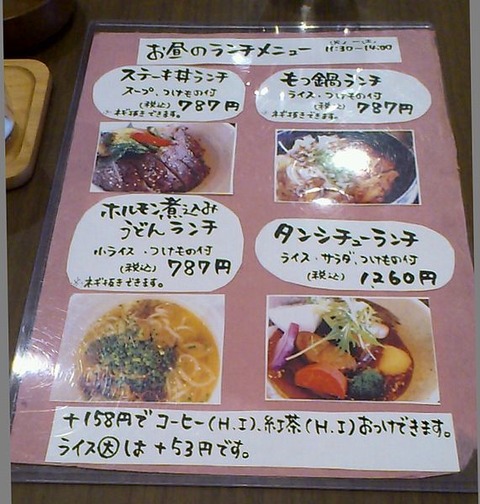 お昼のランチメニュー
11:30-14:00
ステーキ丼ランチ
スープ、つけもの付
(税込) 787円
※ネギ抜きできます。
もつ鍋ランチ
ライス・つけもの付
(税込) 787円
※ネギ抜きできます。
ホルモン煮込み
うどんランチ
小ライス・つけもの付
(税込) 787円
※ネギ抜きできます。
タンシチューランチ
ライス・サラダ、つけもの付
(税込) 1,260円
+158円でコーヒー(H.I)、紅茶(H.I)おつけできます。
ライス大は+53円です。